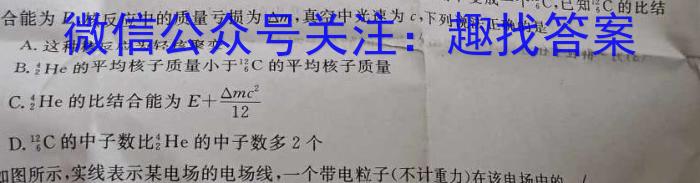 变成一个¹²₆C,已知¹²₆C的比结
合能为E,核反应中的质量亏损为Δm,真空中光速为c,下列
微信公众号关注:趣找答案
A.这种核反应
B.⁴₂He的平均核子质量小于¹²₆C的平均核子质量
C.⁴₂He的比结合能为E+Δmc²/12
D.¹²₆C的中子数比⁴₂He的中子数多2个
如图所示,实线表示某电场的电场线,一个带电粒子(不计重力)在该电场中的